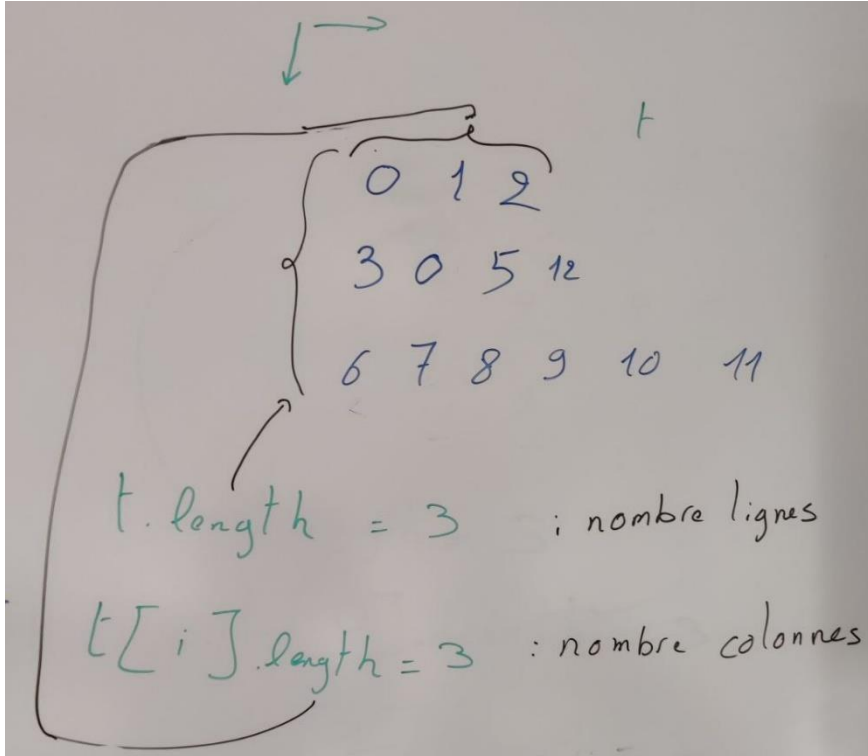 t
0 1 2
3 0 5 12
6 7 8 9 10 11
t.length = 3 : nombre lignes
t[i].length = 3 : nombre colonnes